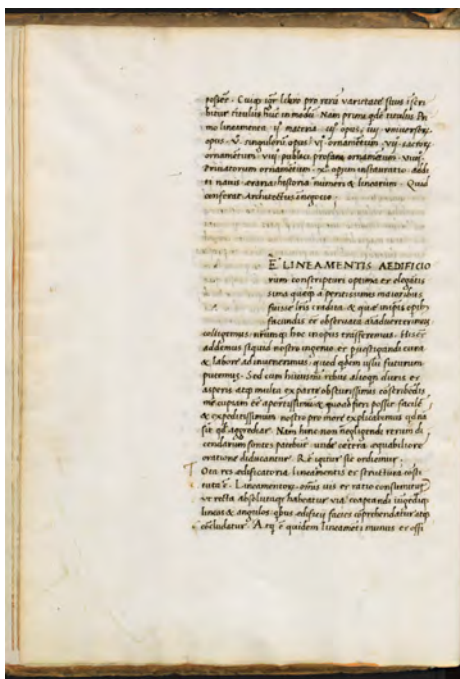 posset. Cuiqꝫ igr̃ libro pro rerū varietate suus iscri
bitur titulus huic in modū. Nam primi qdē titulus Pri
mo lineamenta. ij materia. iij opus. iiij universorꝫ
opus. v. singulorū opus. vj. ornamentum. vij. sacrorꝫ
ornamētum. viij. publici profani ornamētum. viiij.
Privatorum ornamētum. x. operum instauratio. addi
ti navis. eraria. historia. numeri & linearum. Quid
conferat Architectus inegocio.
E LINEAMENTIS AEDIFICIO
rum conscripturi optima et elegātis
sima quæqꝫ a peritissimis maioribus
fuisse līris tradita. & quæ inipsis opibꝫ
faciundis et observata aīadverterimus
colligemus. nr̃umqꝫ hoc inopus trāsferemus. His et
addemus siquid nostro ingenio et pvestigandi cura
& labore adinvenerimus. quod qdem usui futurum
putemus. Sed cum huiusmōi rebus alioqn duris et
asperis atqꝫ multa ex parte obscurissimis cōscribēdis
me cupiam eē apertissimū & quoad fieri possit facilē
& expeditissimum nostro pro more explicabimus qdna
sit qd aggrediar. Nam hinc non negligendi rerum di
cendarum fontes patebūt. unde cætera æquabiliore
oratione diducantur. Rē igitur sic ordiemur.
Tota res ædificatoria lineamentis et structura costi
tuta ē. Lineamentorꝫ omīs vis et ratio consumitur
ut recta absolutaqꝫ habeatur via coaptandi iungēdiqꝫ
lineas & angulos. qbus ædificij facies cōprehendatur atqꝫ
cōcludatur. Atqꝫ ē quidem lineamēti munus et offi